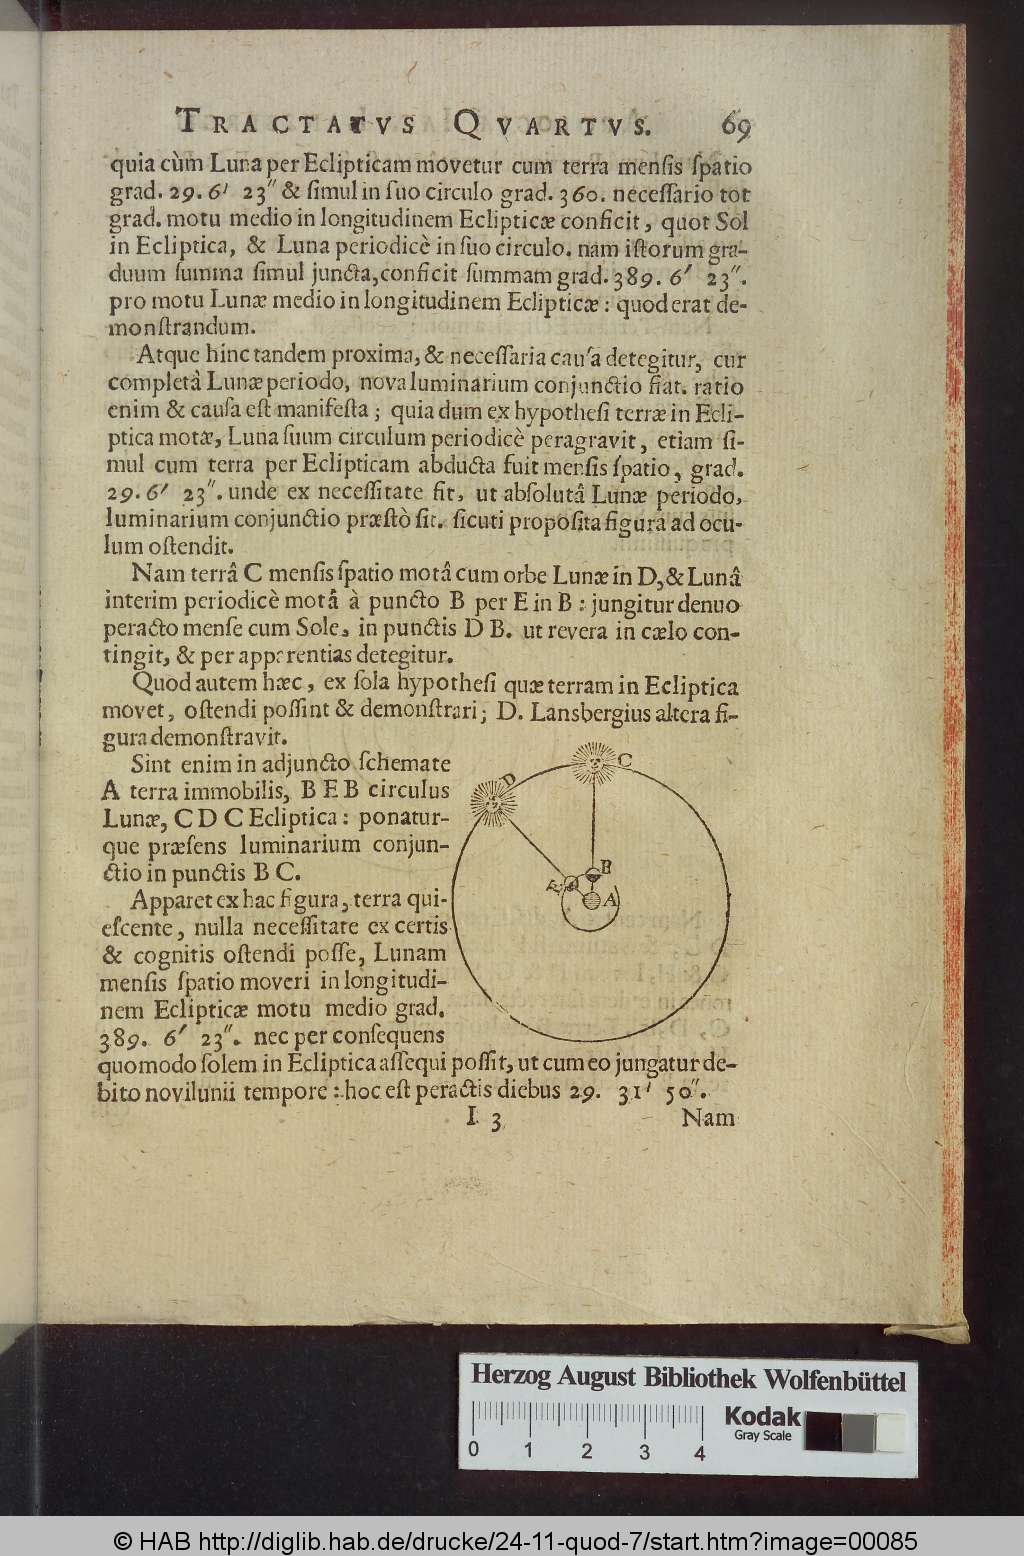 TRACTATVS QVARTVS. 69
quia cùm Luna per Eclipticam movetur cum terra mensis ſpatio
grad. 29. 6′ 23″ & ſimul in ſuo circulo grad. 360. neceſſario tot
grad. motu medio in longitudinem Eclipticæ conficit, quot Sol
in Ecliptica, & Luna periodicè in ſuo circulo. nam iſtorum gra-
duum ſumma ſimul juncta, conficit ſummam grad. 389. 6′ 23″.
pro motu Lunæ medio in longitudinem Eclipticæ: quod erat de-
monſtrandum.
Atque hinc tandem proxima, & neceſſaria cauſa detegitur, cur
completâ Lunæ periodo, nova luminarium conjunctio fiat. ratio
enim & cauſa eſt manifeſta; quia dum ex hypotheſi terræ in Ecli-
ptica motæ, Luna ſuum circulum periodicè peragravit, etiam ſi-
mul cum terra per Eclipticam abducta fuit menſis ſpatio, grad.
29. 6′ 23″. unde ex neceſſitate fit, ut abſolutâ Lunæ periodo,
luminarium conjunctio præſtò ſit. ſicuti propoſita figura ad ocu-
lum oſtendit.
Nam terrâ C menſis ſpatio motâ cum orbe Lunæ in D, & Lunâ
interim periodicè motâ à puncto B per E in B: jungitur denuo
peracto menſe cum Sole, in punctis D B. ut revera in cælo con-
tingit, & per apparentias detegitur.
Quod autem hæc, ex ſola hypotheſi quæ terram in Ecliptica
movet, oſtendi poſſint & demonſtrari; D. Lansbergius altera fi-
gura demonſtravit.
Sint enim in adjuncto ſchemate
A terra immobilis, B E B circulus
Lunæ, C D C Ecliptica: ponatur-
que præſens luminarium conjun-
ctio in punctis B C.
Apparet ex hac figura, terra qui-
eſcente, nulla neceſſitate ex certis
& cognitis oſtendi poſſe, Lunam
menſis ſpatio moveri in longitudi-
nem Eclipticæ motu medio grad.
389. 6′ 23″. nec per conſequens
C
D
B
E
A
quomodo ſolem in Ecliptica aſſequi poſſit, ut cum eo jungatur de-
bito novilunii tempore: hoc eſt peractis diebus 29. 31′ 50″.
I 3 Nam
Herzog August Bibliothek Wolfenbüttel
0 1 2 3 4
Kodak
Gray Scale
© HAB http://diglib.hab.de/drucke/24-11-quod-7/start.htm?image=00085